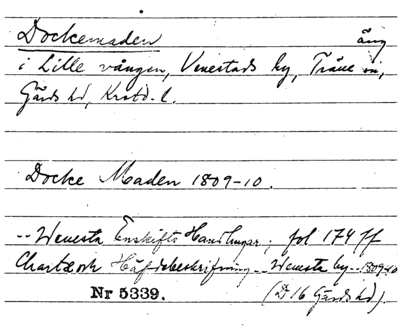 Dockemaden äng
i Lille vången, Venestads by, Träne sn,
Gärds hd, Krstd. l.
Docke Maden 1809-10.
-- Wenesta Enskifts Handlingar, fol 174 ff
Chartæ och Häfdebeskrifning -- Wenesta by -- 1809-10
Nr 5339. (D 16 Gärds hd).